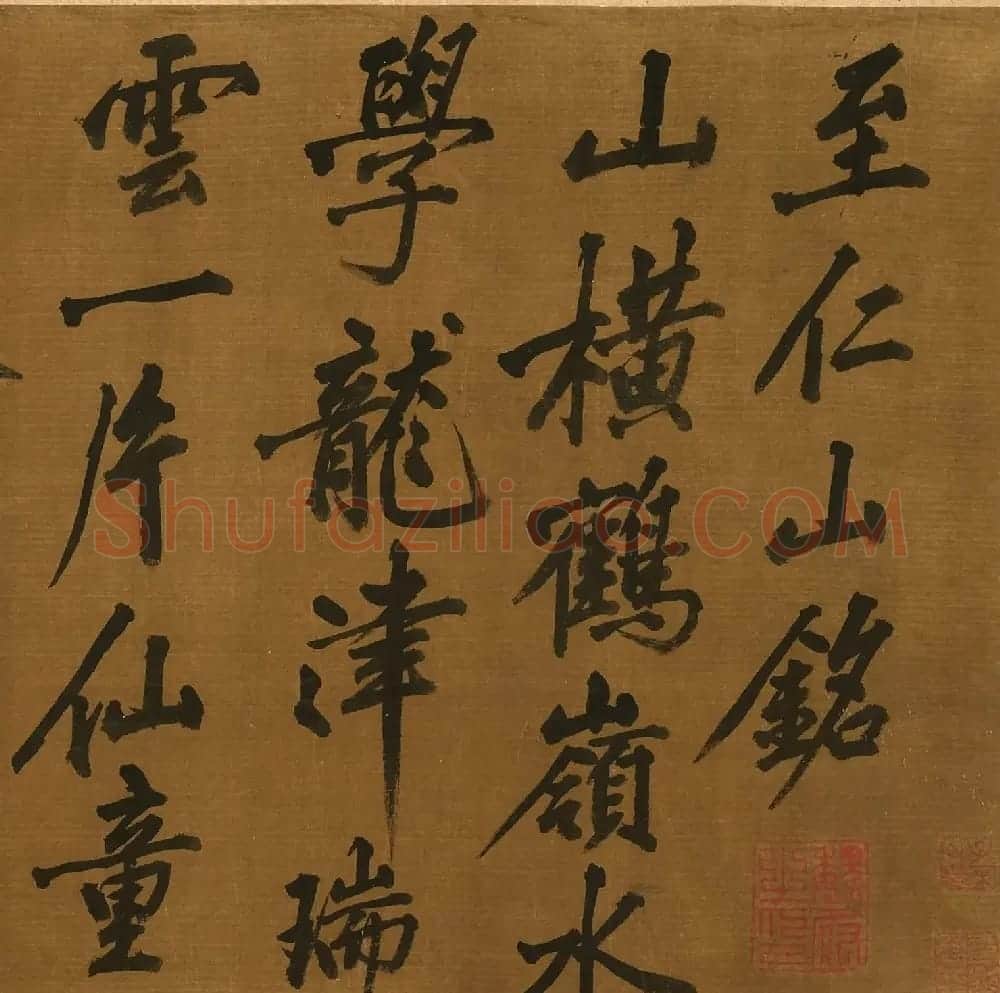 至仁山銘
山橫鶴嶺水
學龍津瑞
雲一片仙童
Shufaziliao.COM